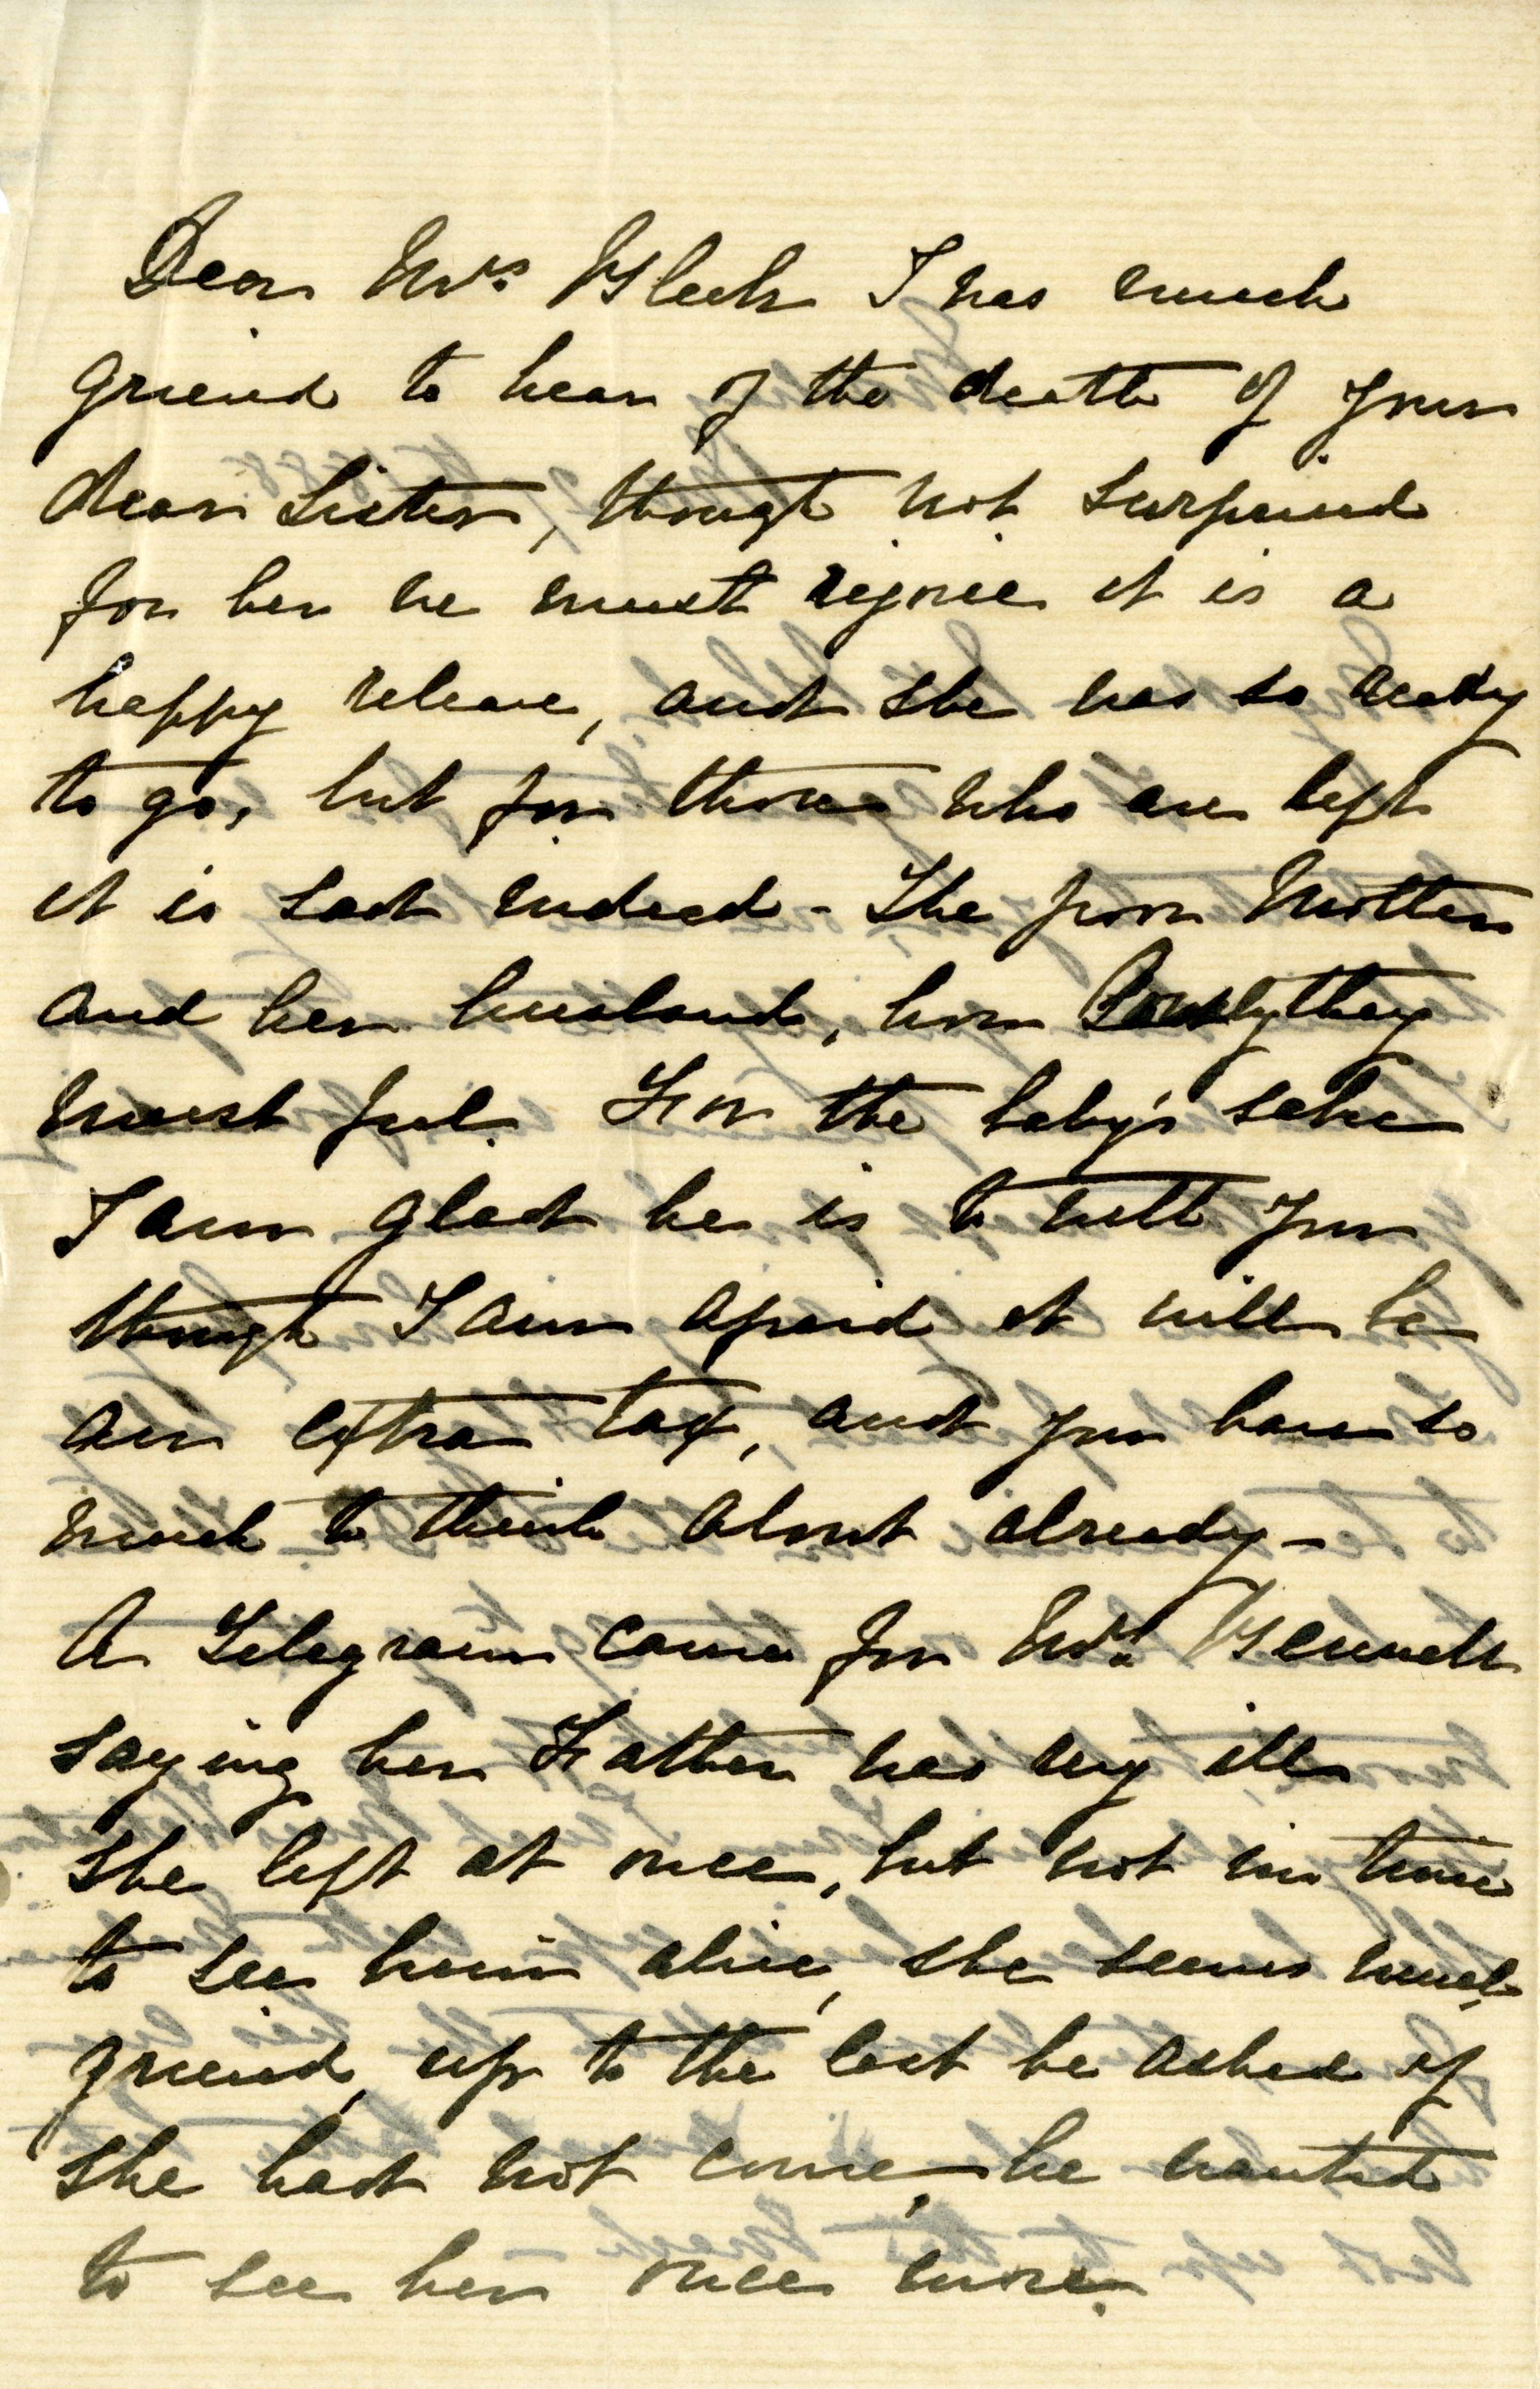 Dear Mrs. Bleek I was much
grieved to hear of the death of your
dear Sister, though not surprised
for her we must rejoice it is a
happy release, and she was so ready
to go, but for those who are left
it is sad indeed - The poor Mother
and her husband, how lonely they
must feel. For the baby's sake
I am glad he is to with you
though I am afraid it will be
an extra tax, and you have so
much to think about already -
A Telegram came for Mrs. Bennett
saying her Father was very ill
she left at once, but not in time
to see him alive, she seems much
grieved, up to the last he asked if
she had not come, he wanted
to see her once more.